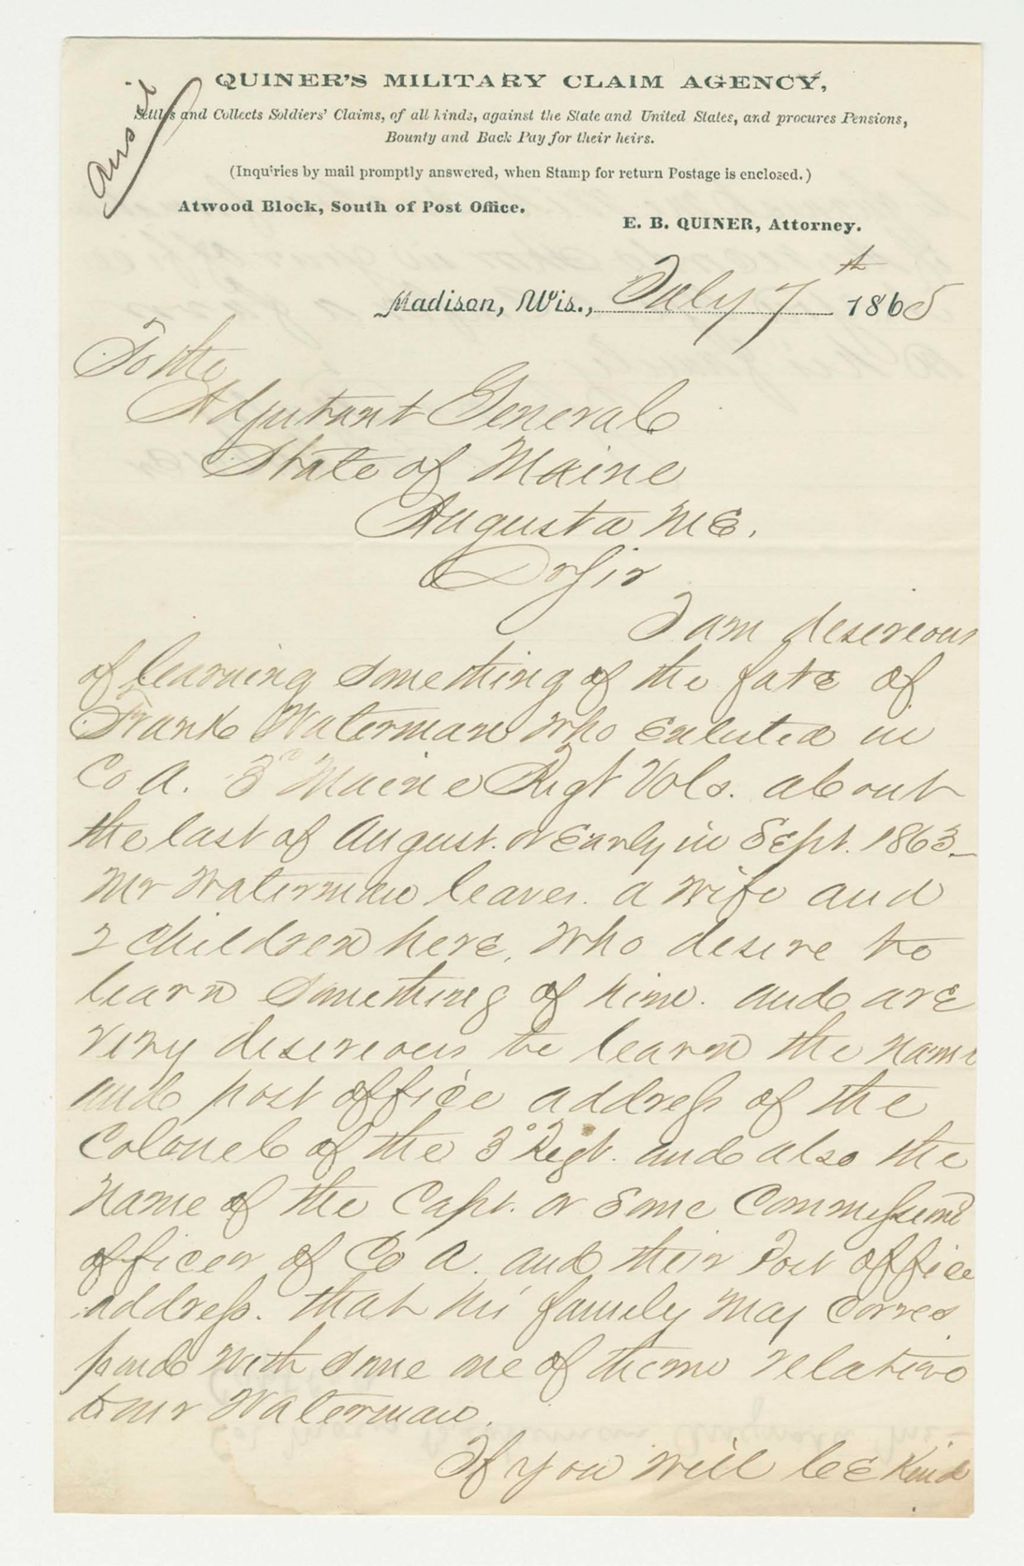 Ans'd
QUINER'S MILITARY CLAIM AGENCY,
Settles and Collects Soldiers' Claims, of all kinds, against the State and United States, and procures Pensions,
Bounty and Back Pay for their heirs.
(Inquiries by mail promptly answered, when Stamp for return Postage is enclosed.)
Atwood Block, South of Post Office.
E. B. QUINER, Attorney.
Madison, Wis., July 7th 1865
To the
Adjutant General
State of Maine
Augusta ME.
Dr Sir
I am desireous
of learning something of the fate of
Frank Waterman who enlisted in
Co A. 3d Maine Regt Vols. about
the last of August. or Early in Sept. 1863_
Mr Waterman leaves. a wife and
2 children here, who desire to
learn something of him. and are
very desireous to learn the name
and post office address of the
Colonel of the 3d Regt. and also the
name of the Capt. or some Commissiond
officer of Co A. and their Post office
address. that his family may corres
pond with some one of them relative
to Mr Waterman.
If you will be kind